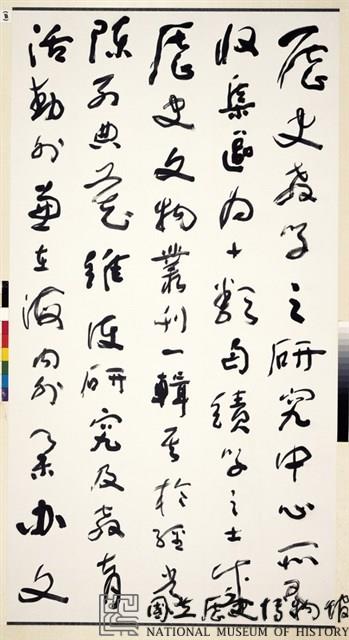 歷史教學之研究中心所
收集區為十類由績學之士
歷史文物叢刊一輯其於經常
陳列典藏維護研究及教育
活動外並在海內外 办文
國立歷史博物館
NATIONAL MUSEUM OF HISTORY